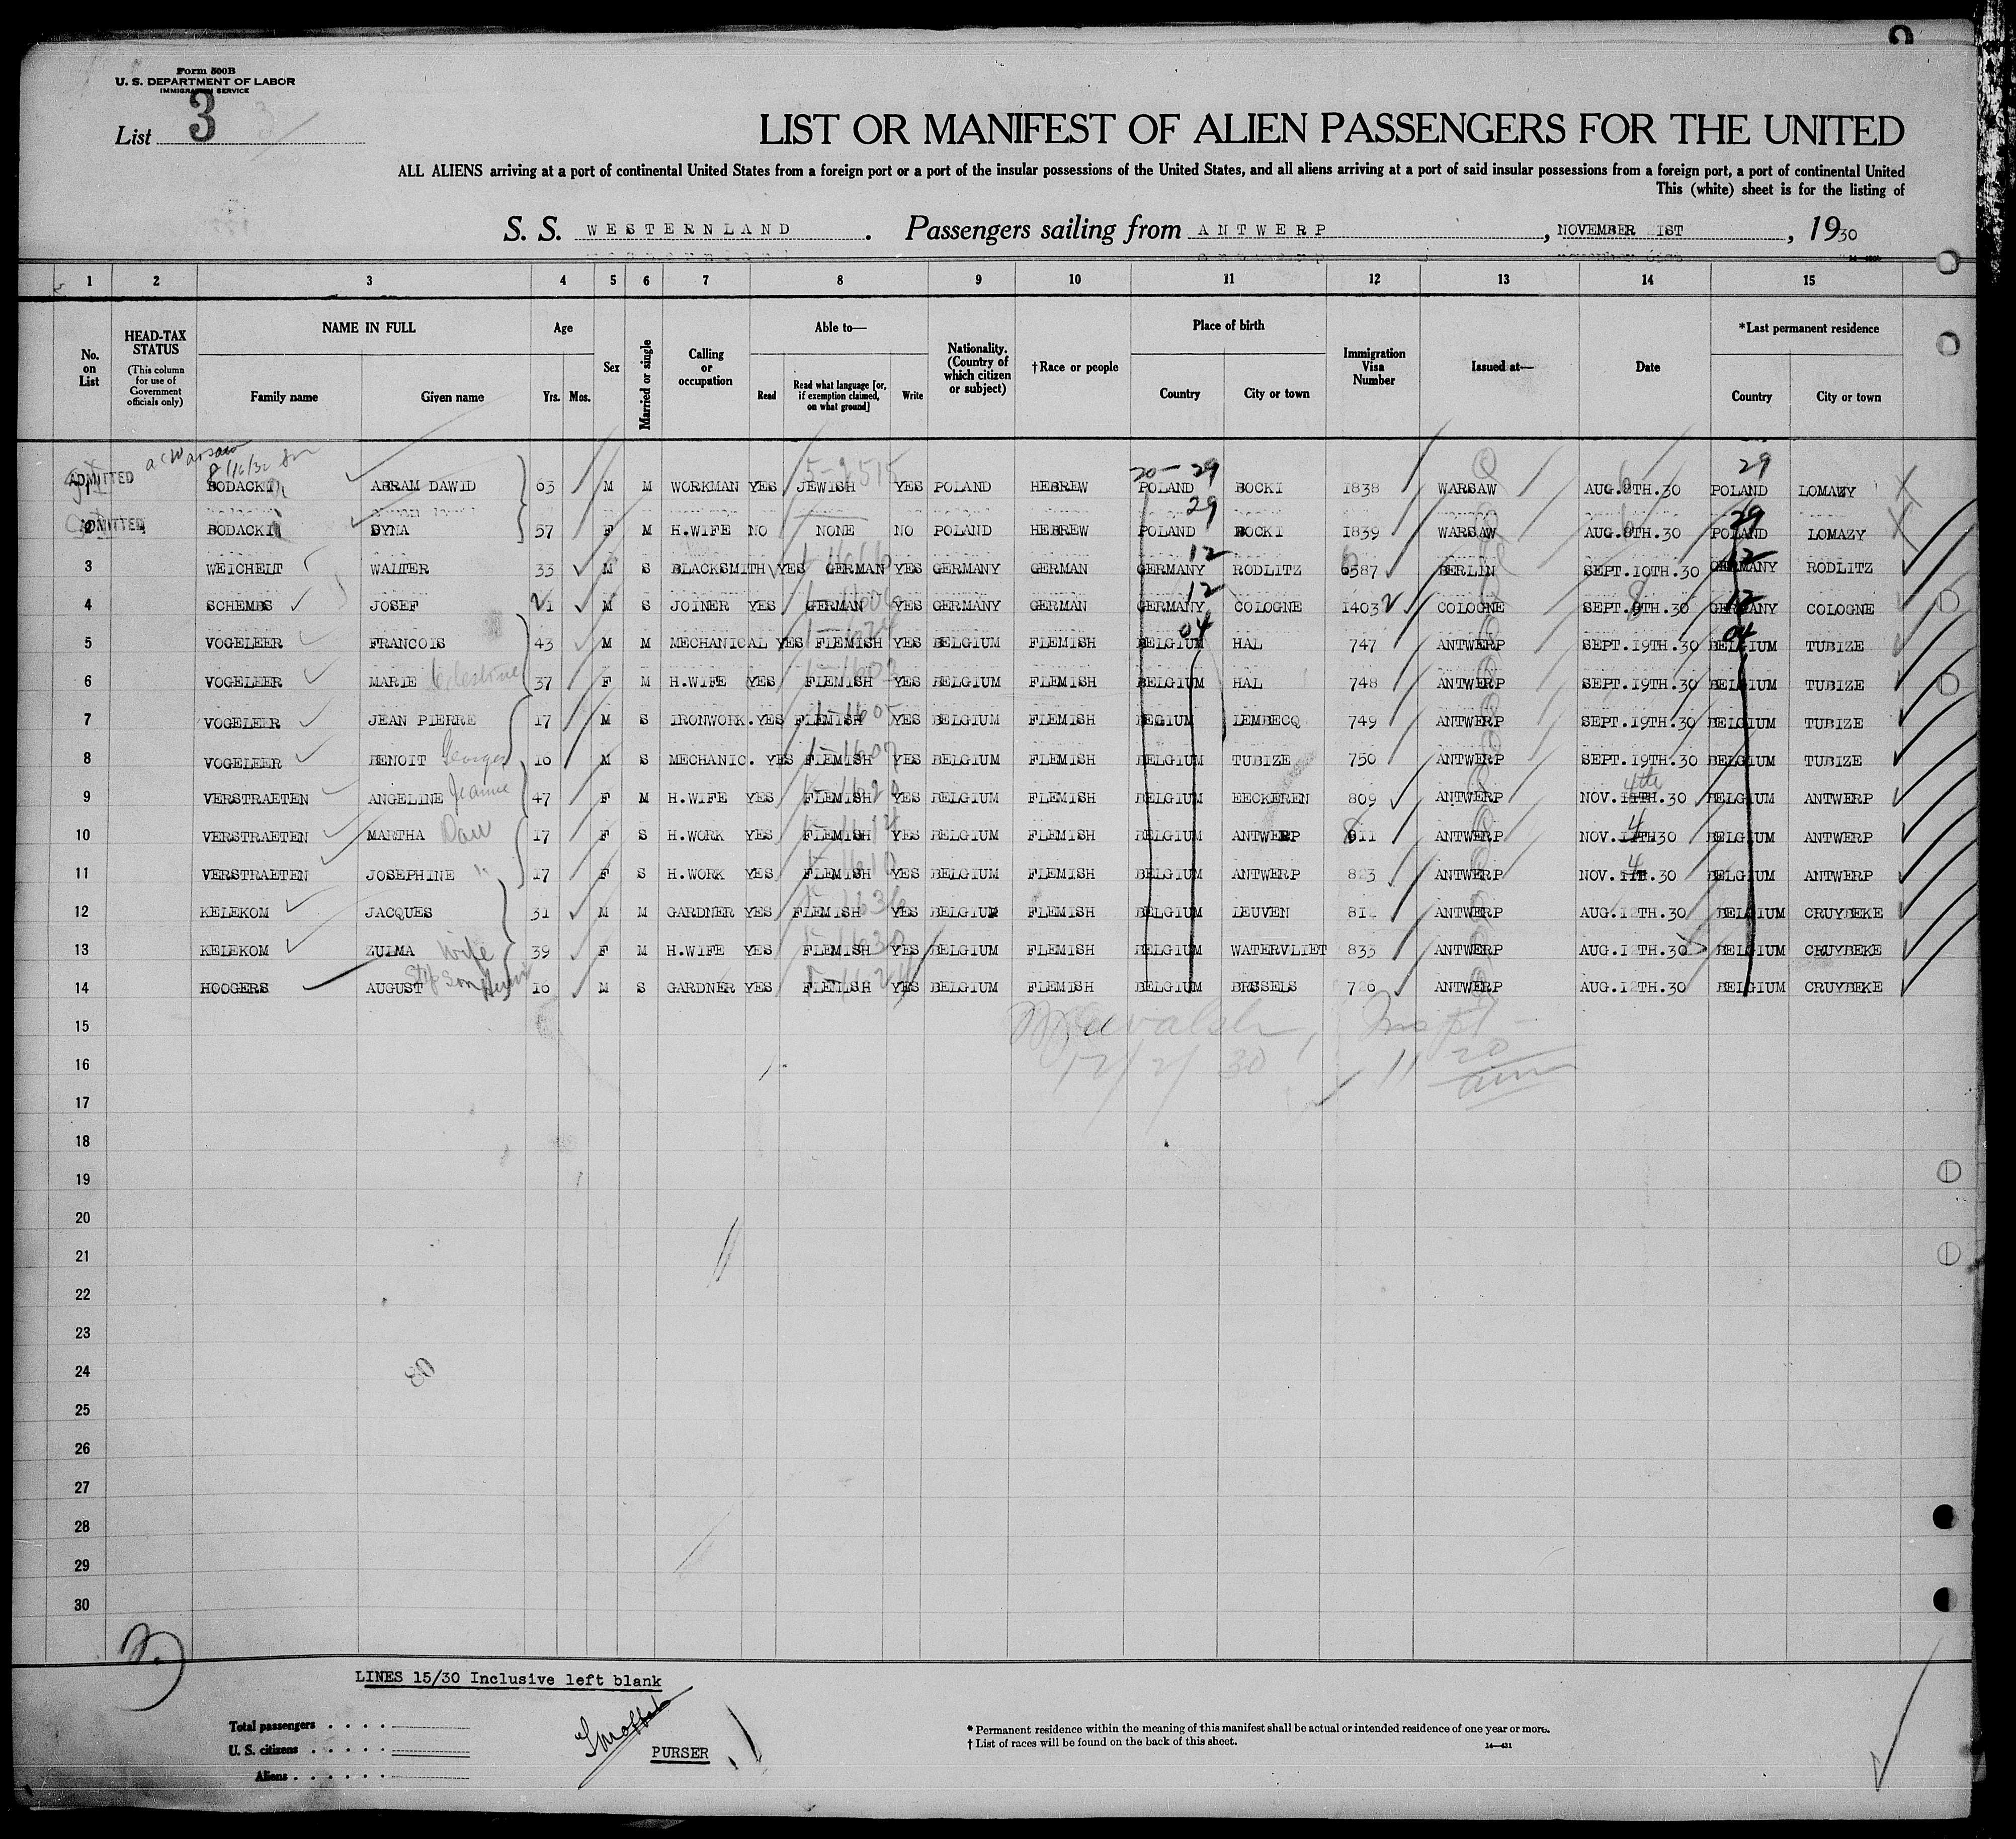 Form 500B
U. S. DEPARTMENT OF LABOR
IMMIGRATION SERVICE
List 3 3
LIST OR MANIFEST OF ALIEN PASSENGERS FOR THE UNITED
ALL ALIENS arriving at a port of continental United States from a foreign port or a port of the insular possessions of the United States, and all aliens arriving at a port of said insular possessions from a foreign port, a port of continental United
This (white) sheet is for the listing of
S. S. WESTERNLAND . Passengers sailing from ANTWERP , NOVEMBER 1ST , 1930
1 2 3 4 5 6 7 8 9 10 11 12 13 14 15
No. on List
HEAD-TAX STATUS (This column for use of Government officials only)
NAME IN FULL
Family name Given name
Age
Yrs. Mos.
Sex
Married or single
Calling or occupation
Able to—
Read Read what language [or, if exemption claimed, on what ground] Write
Nationality. (Country of which citizen or subject)
†Race or people
Place of birth
Country City or town
Immigration Visa Number
Issued at—
Date
*Last permanent residence
Country City or town
20-29 29
ADMITTED 1 BODACKI ABRAM DAWID 63 M M WORKMAN YES JEWISH YES POLAND HEBREW POLAND BOCKI 1838 WARSAW AUG.8TH.30 POLAND LOMAZY
29 29
ADMITTED 2 BODACKI DYNA 57 F M H.WIFE NO NONE NO POLAND HEBREW POLAND BOCKI 1839 WARSAW AUG.8TH.30 POLAND LOMAZY
12 12
3 WEICHELT WALTER 33 M S BLACKSMITH YES GERMAN YES GERMANY GERMAN GERMANY RODLITZ 6587 BERLIN SEPT.10TH.30 GERMANY RODLITZ
12 12
4 SCHEMBS JOSEF 21 M S JOINER YES GERMAN YES GERMANY GERMAN GERMANY COLOGNE 14032 COLOGNE SEPT.9TH.30 GERMANY COLOGNE
04 04
5 VOGELEER FRANCOIS 43 M M MECHANICAL YES FLEMISH YES BELGIUM FLEMISH BELGIUM HAL 747 ANTWERP SEPT.19TH.30 BELGIUM TUBIZE
6 VOGELEER MARIE Celestine 37 F M H.WIFE YES FLEMISH YES BELGIUM FLEMISH BELGIUM HAL 748 ANTWERP SEPT.19TH.30 BELGIUM TUBIZE
7 VOGELEER JEAN PIERRE 17 M S IRONWORK. YES FLEMISH YES BELGIUM FLEMISH BEGIUM LEMBECQ 749 ANTWERP SEPT.19TH.30 BELGIUM TUBIZE
8 VOGELEER BENOIT Georges 16 M S MECHANIC. YES FLEMISH YES BELGIUM FLEMISH BELGIUM TUBIZE 750 ANTWERP SEPT.19TH.30 BELGIUM TUBIZE
9 VERSTRAETEN ANGELINE Jeanne 47 F M H.WIFE YES FLEMISH YES BELGIUM FLEMISH BELGIUM EECKEREN 809 ANTWERP NOV.11TH.30 4th BELGIUM ANTWERP
10 VERSTRAETEN MARTHA Dau 17 F S H.WORK YES FLEMISH YES BELGIUM FLEMISH BELGIUM ANTWERP 811 ANTWERP NOV. 4 30 BELGIUM ANTWERP
11 VERSTRAETEN JOSEPHINE " 17 F S H.WORK YES FLEMISH YES BELGIUM FLEMISH BELGIUM ANTWERP 823 ANTWERP NOV. 4 .30 BELGIUM ANTWERP
12 KELEKOM JACQUES 31 M M GARDNER YES FLEMISH YES BELGIUM FLEMISH BELGIUM LEUVEN ANTWERP AUG.12TH.30 BELGIUM CRUYBEKE
13 KELEKOM ZULMA Wife 39 F M H.WIFE YES FLEMISH YES BELGIUM FLEMISH BELGIUM WATERVLIET 833 ANTWERP AUG.12TH.30 BELGIUM CRUYBEKE
14 HOOGERS AUGUST Step son Henri 16 M S GARDNER YES FLEMISH YES BELGIUM FLEMISH BELGIUM BRSSELS 726 ANTWERP AUG.12TH.30 BELGIUM CRUYBEKE
15
16 12/2/30 11 20 am
17
18
19
20
21
22
23
24
25
26
27
28
29
30
LINES 15/30 Inclusive left blank
Total passengers
U. S. citizens
Aliens
PURSER
* Permanent residence within the meaning of this manifest shall be actual or intended residence of one year or more.
† List of races will be found on the back of this sheet.
14—431